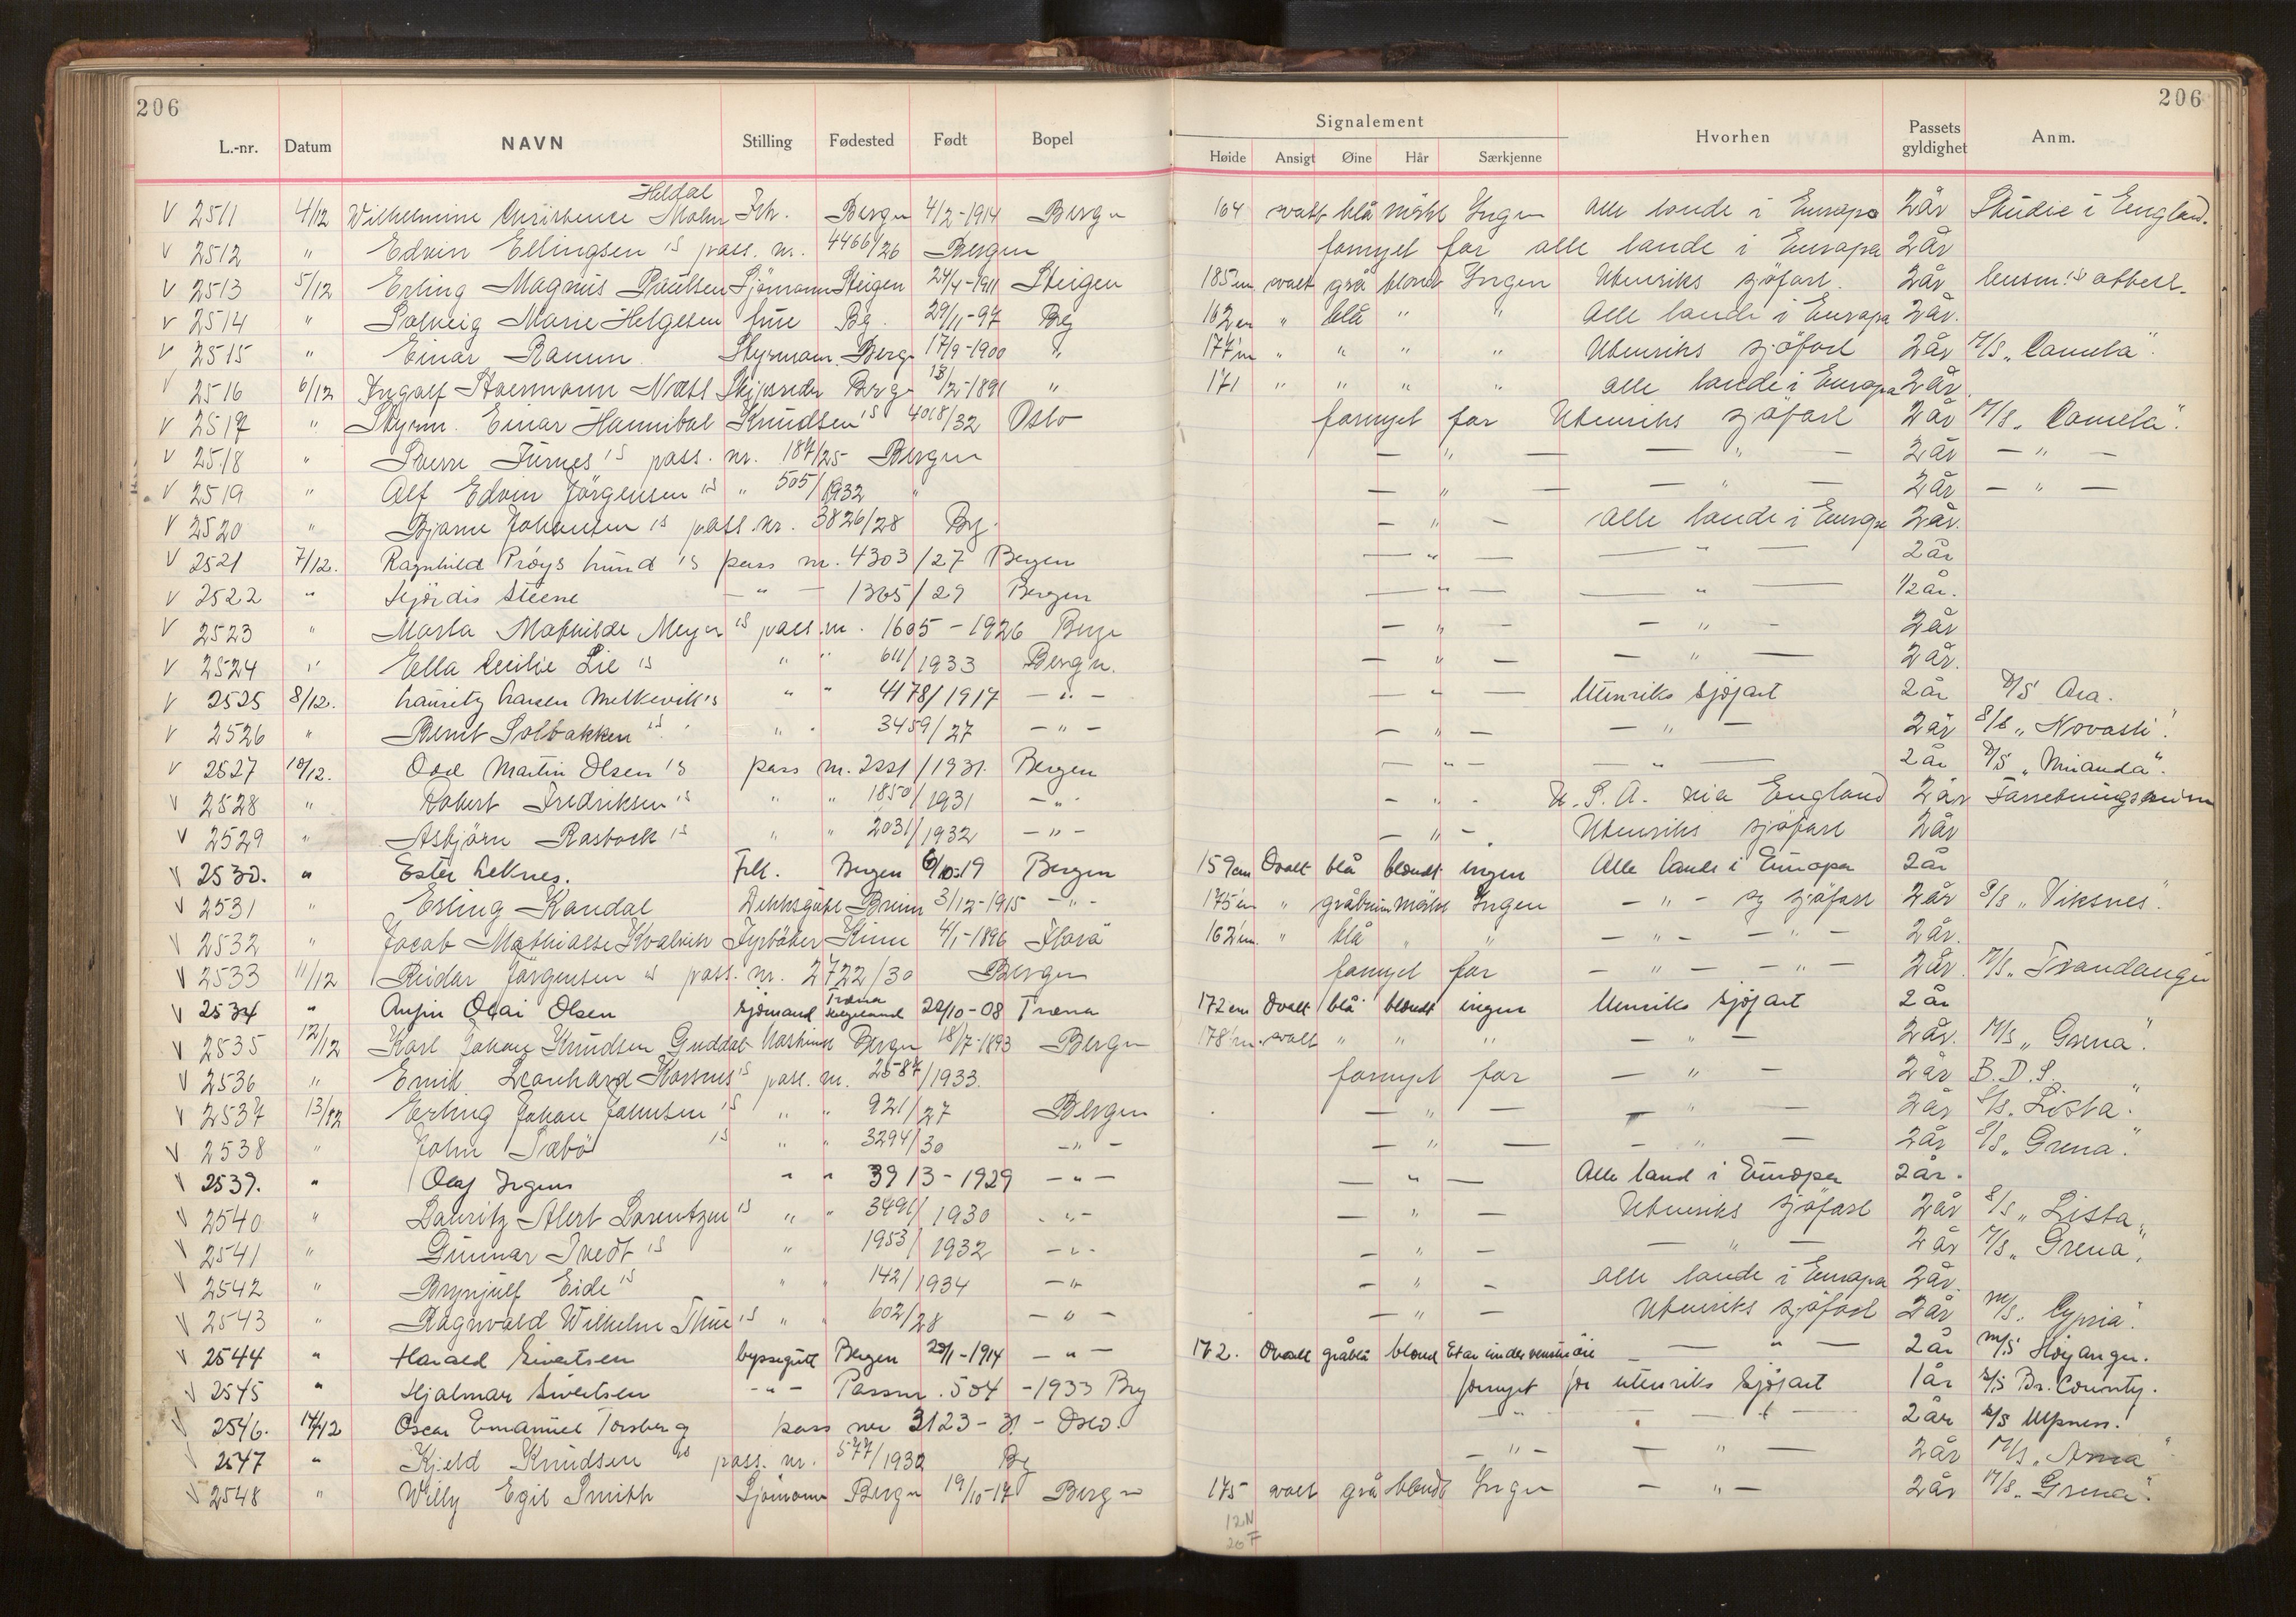 206 206
Signalement
L.-nr. Datum NAVN Stilling Fødested Født Bopel Høide Ansigt Øine Hår Særkjenne Hvorhen Passets gyldighet Anm.
Heldal
V 2511 4/12 Wilhelmine Christence Mohn Frk. Bergen 4/2-1914 Bergen 164 ovalt blå mörkt Ingen alle lande i Europa 2 år Studie i England.
V 2512 " Edvin Ellingsen's pass. nr. 4466/26 Bergen fornyet for alle lande i Europa 2 år
V 2513 5/12 Erling Magnus Paulsen Sjömann Steigen 24/4-1911 Steigen 185 cm ovalt grå blondt Ingen Utenriks sjöfart. 2 år lensm.'s attest.
V 2514 " Solveig Marie Helgesen frue Bg. 29/11-97 Bg 162 cm " blå " " Alle lande i Europa 2 år.
V 2515 " Einar Ramm. Styrmann Bergen 17/9-1900 " 174 cm " " " " Utenriks sjöfart 2 år M/S „Cometa".
V 2516 6/12 Ingolf Næss Skipsreder Bergen 13/2-1891 " 171 " " " " alle lande i Europa 2 år.
V 2517 " Styrm. Einar Hannibal Knudsen's 4018/32 Oslo fornyet for Utenriks sjöfart 2 år M/S „Cometa".
V 2518 " Sverre Furnes's pass. nr. 187/25 Bergen — " — — " — 2 år — " —
V 2519 " Alf Edvin Jörgensen's " 505/1932 " — " — — " — 2 år — " —
V 2520 " Bjarne Johansen's pass. nr. 3826/28 Bg. — " — alle lande i Europa 2 år.
V 2521 7/12. Ragnhild Prøys Lund's pass nr. 4303/27 Bergen — " — — " — 2 år
V 2522 " Hjördis Steene — " — 1365/29 Bergen — " — — " — 1/2 år.
V 2523 " Marta Mathilde Meyer's pass. nr. 1605-1926 Bergen — " — — " — 2 år
V 2524 " Ella Cecilie Lie's " " 611/1933 Bergen. — " — — " — 2 år.
V 2525 8/12. Lauritz Larsen Melkevik's " " 4178/1917 — " — — " — Utenriks sjöfart 2 år D/S Ara.
V 2526 " Bernt Solbakken's " " 3459/27 — " — — " — — " — 2 år S/S „Novasli".
V 2527 10/12. Odd Martin Olsen's pass nr. 2221/1931. Bergen — " — — " — 2 år D/S „Miranda".
V 2528 " Robert Fredriksen's " " 1850/1931 — " — — " — U.S.A. via England 2 år
V 2529 " Asbjörn Rasbock's " " 2031/1932 — " — — " — Utenriks sjöfart 2 år
V 2530. " Ester Leknes. Frk. Bergen 6/10-19 Bergen 159 cm Ovalt blå blondt ingen Alle lande i Europa 2 år
V 2531 " Erling Kandal Dekksgutt Breim 3/12-1915 — " — 175 cm " gråbrun mörkt Ingen — " — og sjöfart 2 år S/S „Viksnes".
V 2532 " Jacob Mathiasse Kvalvik Fyrböter Kinn 4/1-1896 Florö 162 cm. " blå " " — " — — " — 2 år.
V 2533 11/12 Reidar Jörgensen's pass. nr. 2722/30 Bergen fornyet for — " — — " — 2 år. M/S „Trondanger
V 2534 " Anfin Olai Olsen sjömand Træna Helgeland 22/10-08 Træna 172 cm Ovalt blå blondt ingen Utenriks sjöfart 2 år
V 2535 12/12 Karl Johan Knudsen Guddal Maskinist Bergen 18/7-1893 Bergen 178 cm. ovalt " " " — " — 2 år. M/S „Grena".
V 2536 " Emil Leonhard pass. nr. 2587/1933. fornyet for — " — 2 år B.D.S.
V 2537 13/12 Erling Johan Johnsen's " " 921/27 Bergen — " — — " — 2 år S/S. „Lista".
V 2538 " John Sæbö's " " 3294/30 — " — — " — — " — 2 år S/S „Grena".
V 2539. " Olaf Irgens " " 3913-1929 — " — — " — Alle land i Europa 2 år.
V 2540 " Lauritz Alert Lorentzen's " " 3491/1930 — " — — " — Utenriks sjöfart 2 år S/S „Lista"
V 2541 " Gunnar Tvedt's " 1953/1932 — " — — " — — " — 2 år M/S „Grena"
V 2542 " Brynjulf Eide's " " 142/1934 — " — — " — alle lande i Europa 2 år.
V 2543 " Ragnvald Wilhelm Thue's " " 602/28 — " — — " — Utenriks sjöfart 2 år M/S. Cypria".
V 2544 " Harald Sivertsen byssegutt Bergen 29/11-1914 — " — 172. Ovalt gråblå blond Et ar under venstre öie — " — 2 år M/S Höyanger.
V 2545 " Hjalmar Sivertsen — " — Passnr. 504-1933 Bg fornyet for utenriks sjöfart 1 år S/S Br. County.
V 2546. 14/12 Oscar Emanuel Torsberg pass nr 3123-31 - Oslo. — " — — " — 2 år S/S Ulpness.
V 2547 " Kjeld Knudsen's pass. nr. 577/1932 Bg — " — — " — 2 år M/S. Anna"
V 2548 " Willy Egil Smith Sjömann Bergen 19/10-17 Bergen 175 ovalt grå blondt Ingen — " — 2 år M/S „Grena".
12 N
20 F